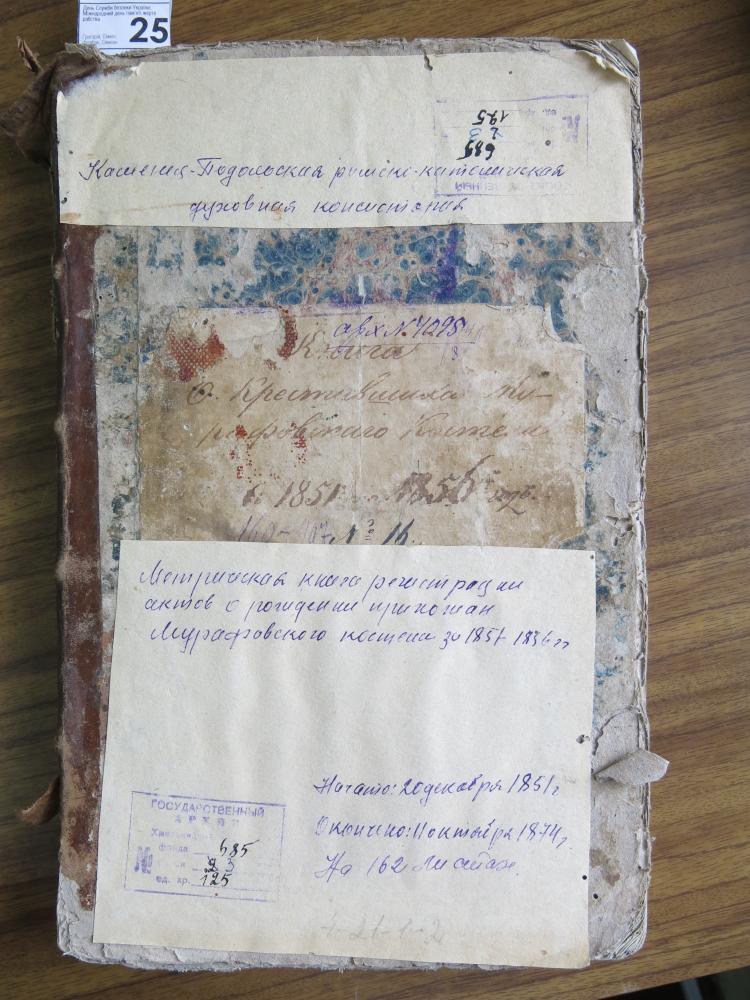 День Служби безпеки України;
Міжнародний день пам'яті жертв
рабства
25
685
2 3
125
Каменец-Подольская римско-католическая
духовная консистория
арх N. 4295
Книга
О Крестившихся Му-
рафовского Костела
с 1851 по 1856 годъ.
Метрическая книга регистрации
актов о рождении прихожан
Мурафовского костела за 1851-1856 гг
Начато: 20 декабря 1851 г
Окончено: 11 октября 1874 г.
На 162 листах.
ГОСУДАРСТВЕННЫЙ
АРХИВ
№ фонда 685
2 3
ед. хр. 125
4-21-1-2